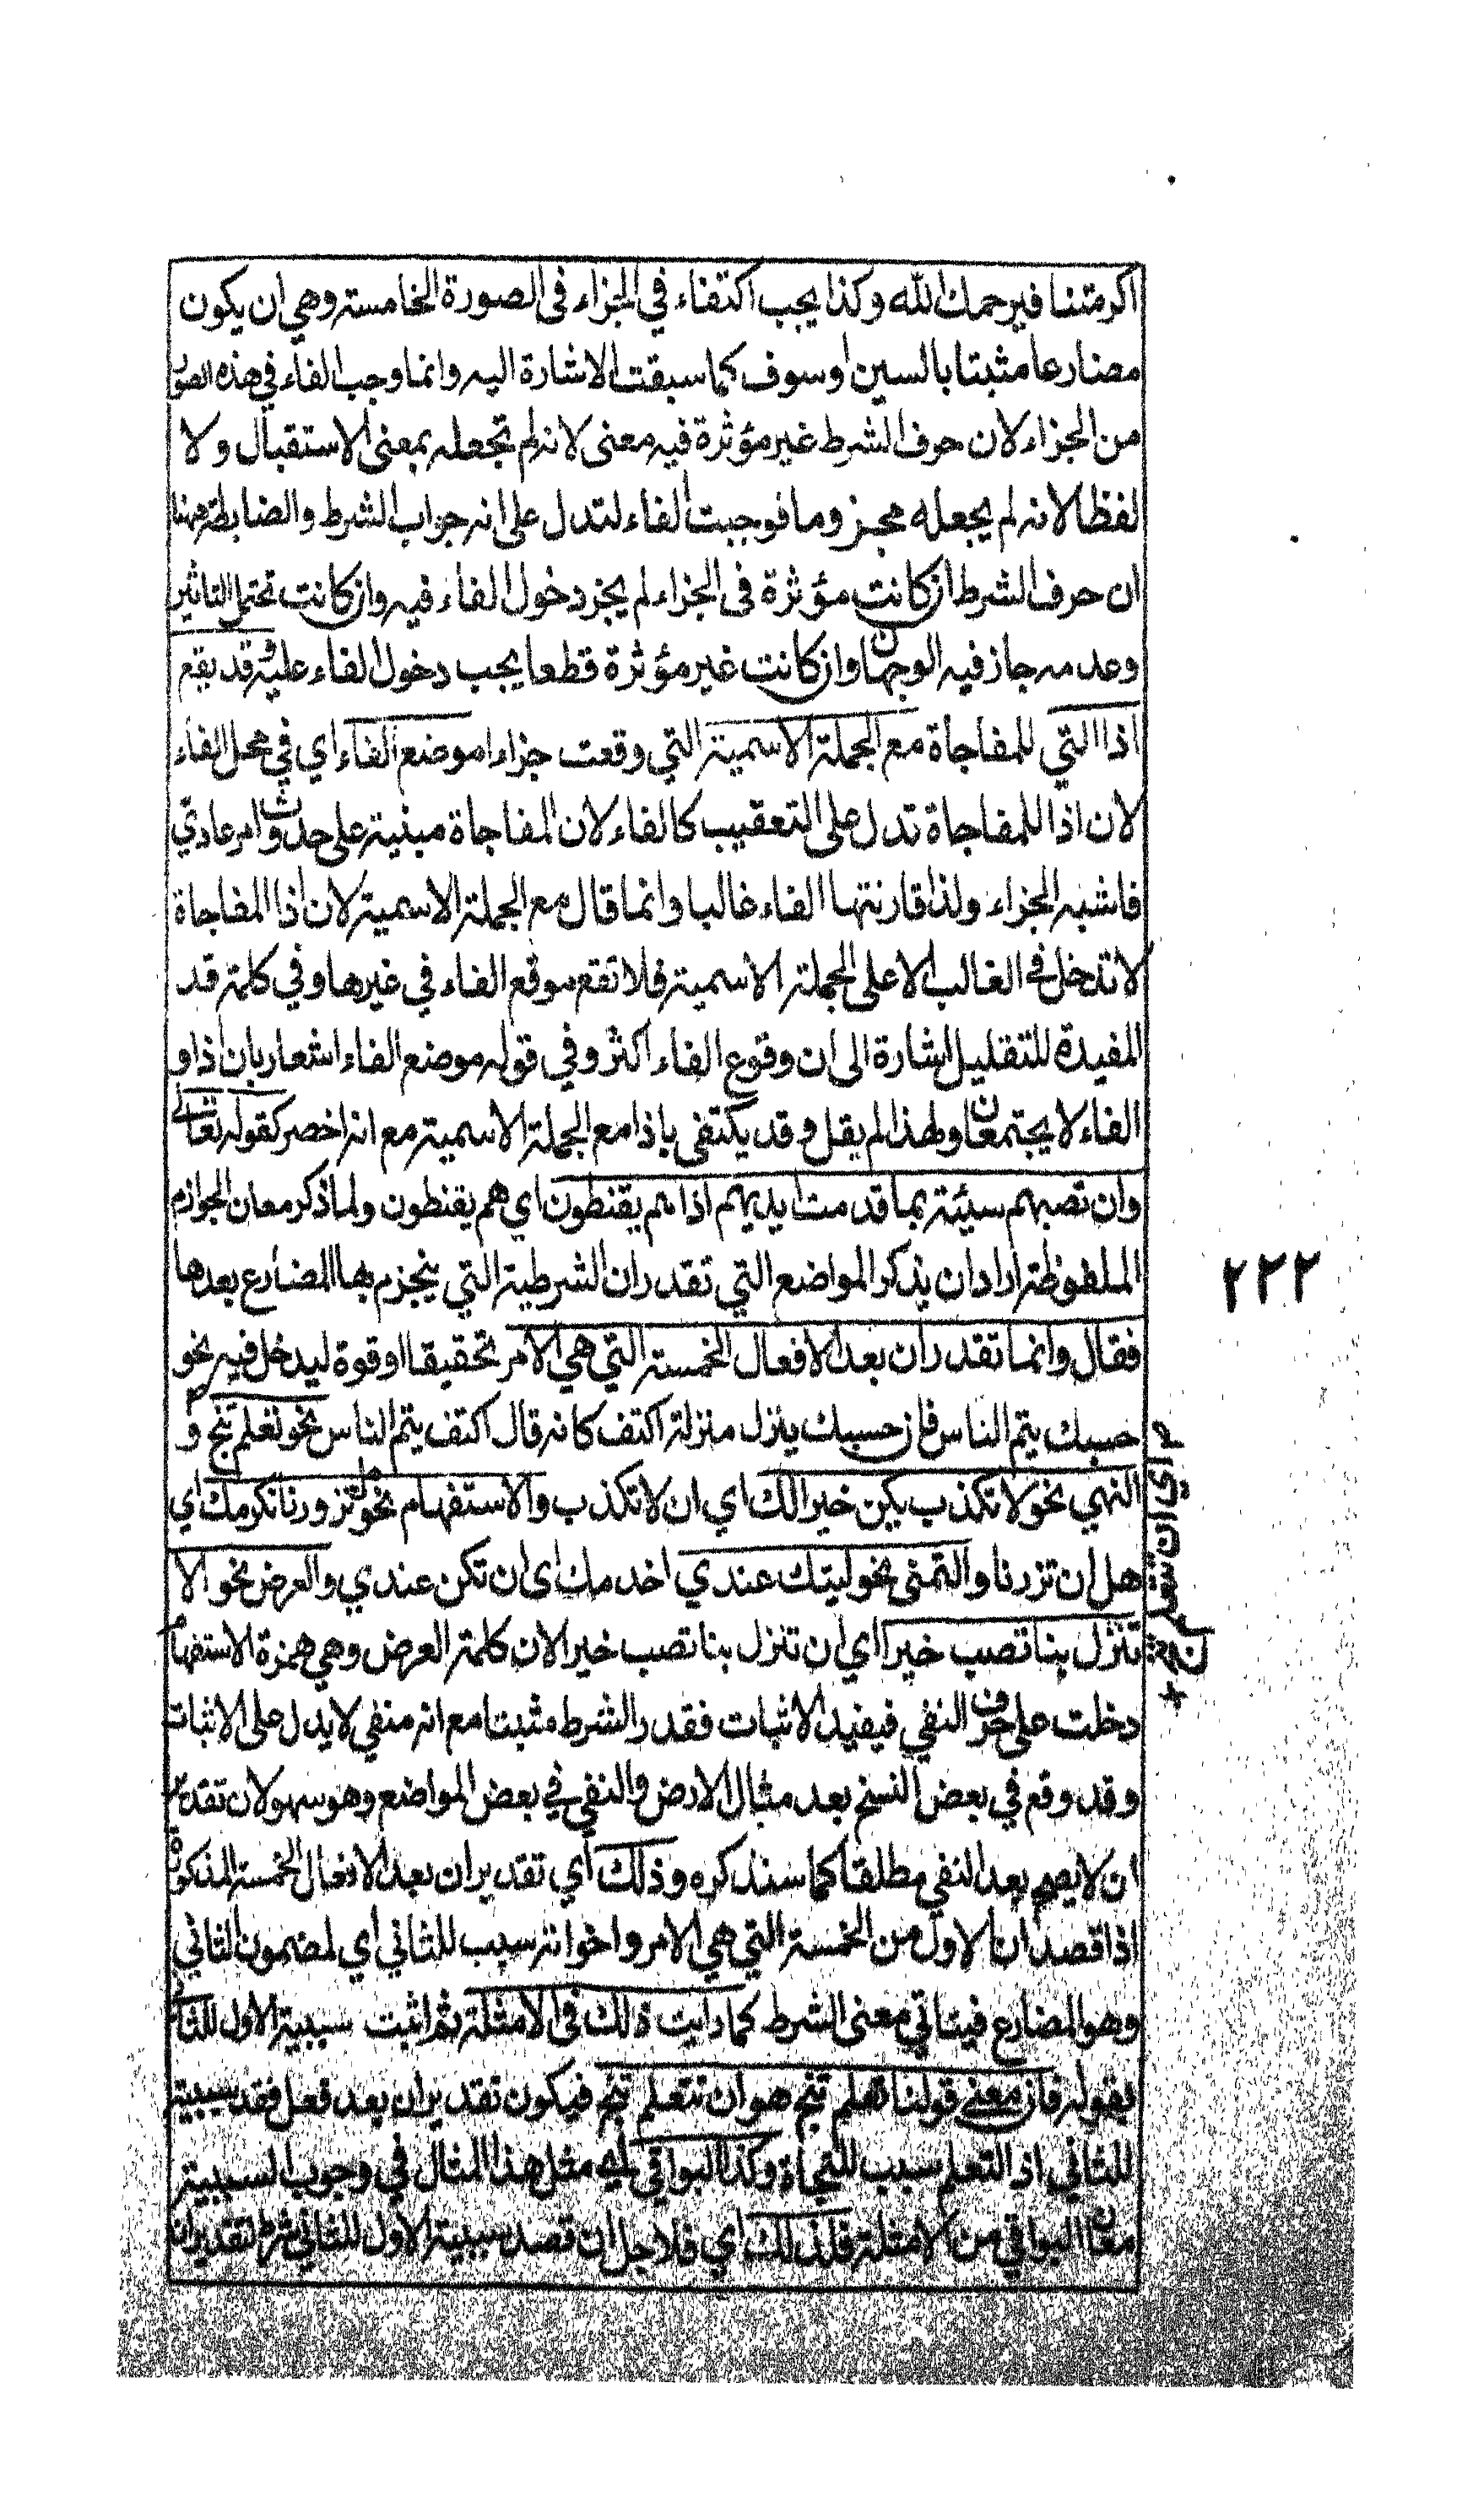 اكرمتنا فيرحمك الله وكذا يجب اكتفاء في الجزاء فى الصورة الخامسة وهي ان يكون
مضارعا مثبتا بالسين او سوف كما سبقت الاشارة اليه وانما وجب الفاء في هذه الصور
من الجزاء لان حرف الشرط غير مؤثرة فيه معنى لانه لم تجعله بمعنى الاستقبال ولا
لفظا لانه لم يجعله مجزوما فوجبت الفاء لتدل على انه جواب الشرط والضابطة ههنا
ان حرف الشرط ان كانت مؤثرة فى الجزاء لم يجز دخول الفاء فيه وان كانت تحتمل التاثير
وعدمه جاز فيه الوجهان وان كانت غير مؤثرة قطعا يجب دخول الفاء عليه وقد يقع
اذا التي للمفاجاة مع الجملة الاسمية التي وقعت جزاء موضع الفاء اي في محل الفاء
لان اذا للمفاجاة تدل على التعقيب كالفاء لان المفاجاة مبنية على حدوث امر عادي
فاشبه الجزاء ولذا قارنتها الفاء غالبا وانما قال مع الجملة الاسمية لان اذا المفاجاة
لا تدخل في الغالب الا على الجملة الاسمية فلا تقع موقع الفاء في غيرها وفي كلمة قد
المفيدة للتقليل اشارة الى ان وقوع الفاء اكثر وفي قوله موضع الفاء اشعار بان اذا و
الفاء لا يجتمعان ولهذا لم يقل وقد يكتفى باذا مع الجملة الاسمية مع انه اخصر كقوله تعالى
وان تصبهم سيئة بما قدمت ايديهم اذا هم يقنطون اي هم يقنطون ولما ذكر معان الجوازم
الملفوظة اراد ان يذكر المواضع التي تقدر ان الشرطية التي ينجزم بها المضارع بعدها
فقال وانما تقدر ان بعد الافعال الخمسة التي هي الامر تحقيقا او قوة ليدخل فيه نحو
حسبك يتم الناس فان حسبك ينزل منزلة اكتف كانه قال اكتف يتم الناس نحو تعلم تنج و
النهي نحو لا تكذب يكن خيرا لك اي ان لا تكذب والاستفهام نحو هل تزورنا نكرمك اي
هل ان تزرنا والتمنى نحو ليتك عندي اخدمك اى ان تكن عندي والعرض نحو الا
تنزل بنا تصب خيرا اي ان تنزل بنا تصب خيرا لان كلمة العرض وهي همزة الاستفهام
دخلت على حرف النفي فيفيد الاثبات فقدر الشرط مثبتا مع انه منفي لا يدل على الاثبات
وقد وقع في بعض النسخ بعد مثال الارض والنفي في بعض المواضع وهو سهو لان تقدير
ان لا يصح بعد النفي مطلقا كما سنذكره وذلك اي تقدير ان بعد الافعال الخمسة المذكورة
اذا قصد ان الاول من الخمسة التي هي الامر واخوانه سبب للثاني اي لمضمون الثاني
وهو المضارع فيتاتي معنى الشرط كما رايت ذلك فى الامثلة ثم اثبت سببية الاول للثاني
بقوله فان معنى قولنا تعلم تنج هو ان تتعلم تنج فيكون تقدير ان بعد فعل فقد سببية
للثاني اذ التعلم سبب للنجاة وكذا البواقي اي مثل هذا المثال في وجوب السببية
معان البواقي من الامثلة فلذلك اي فلاجل ان قصد سببية الاول للثاني شرط لتقدير ان
٢٢٢